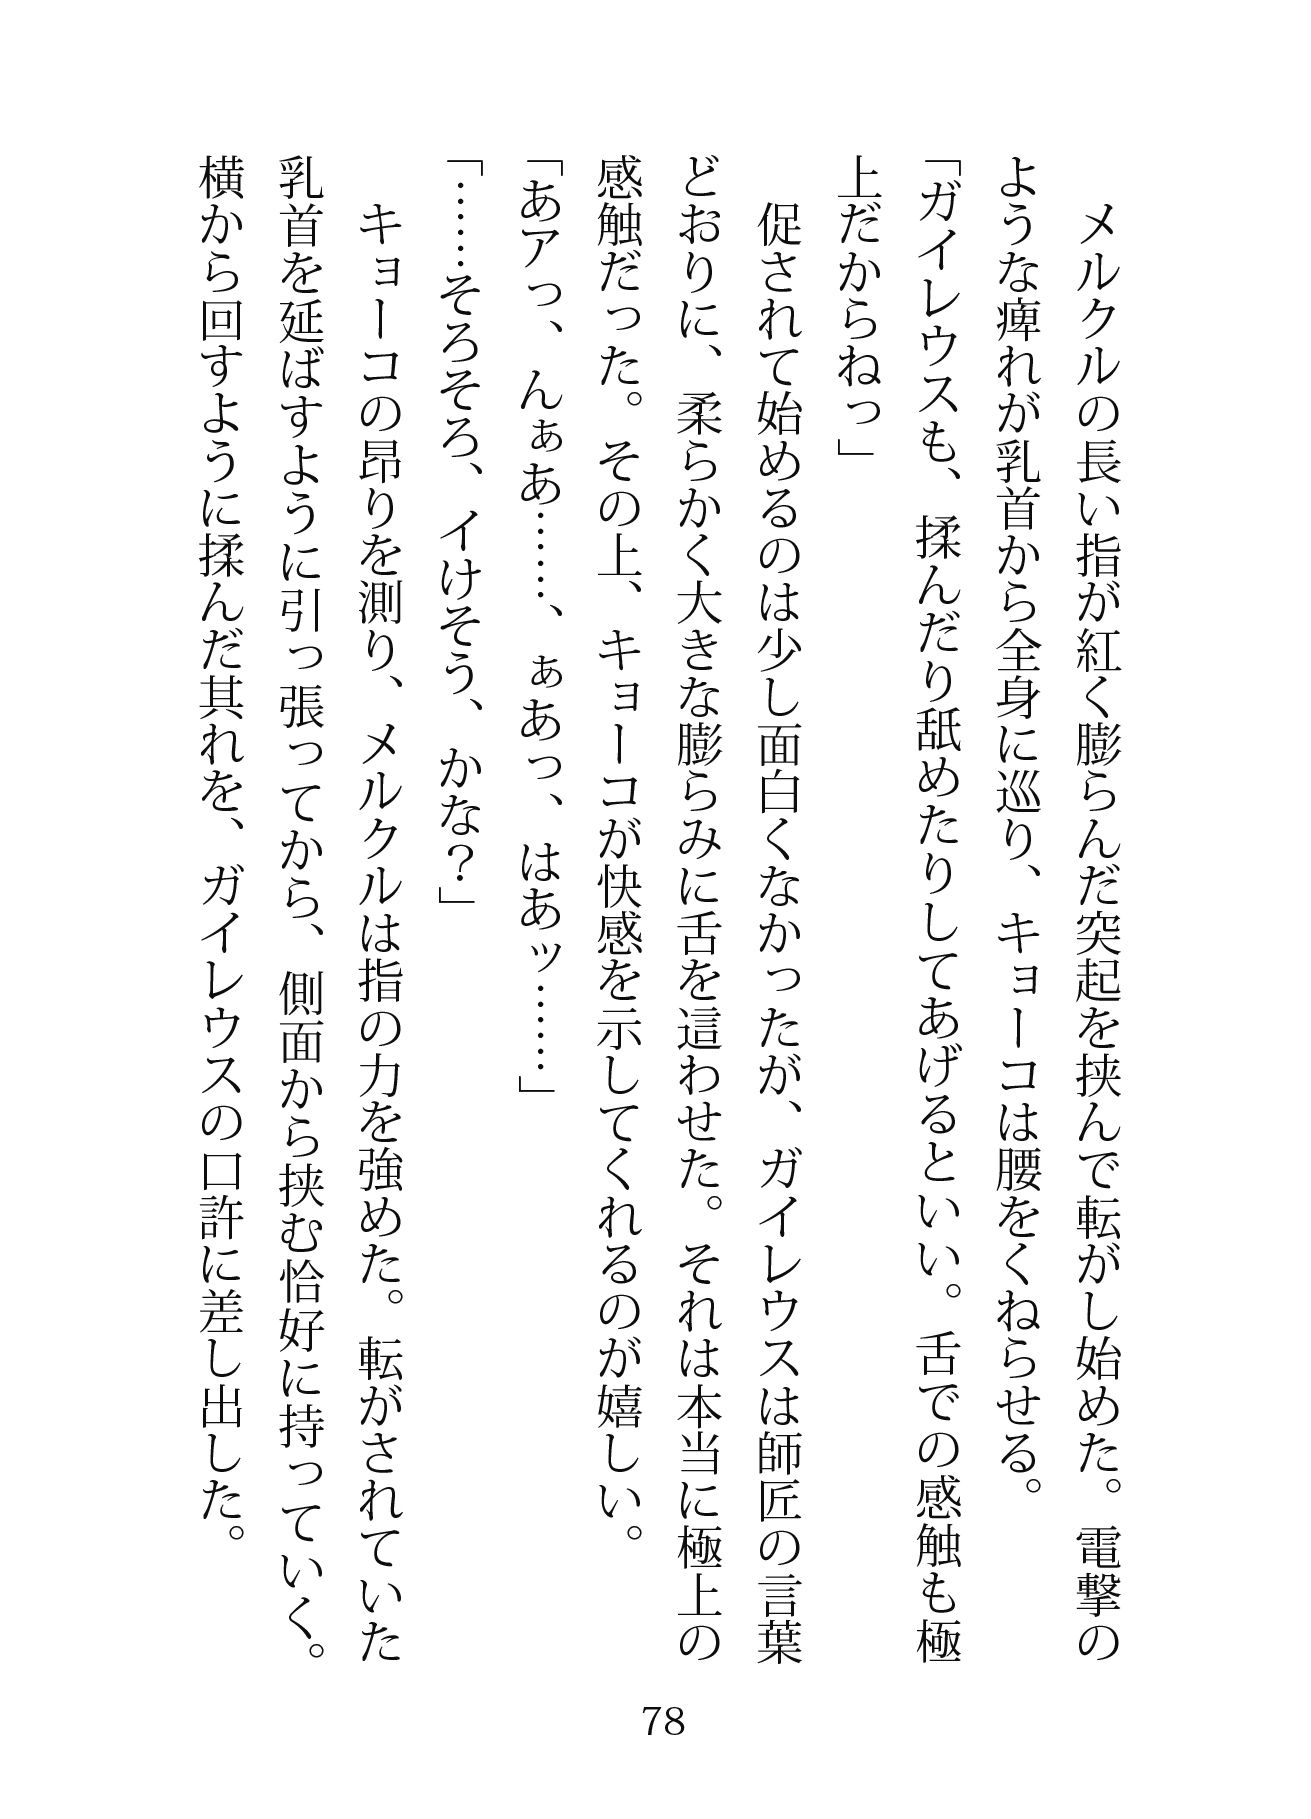 メルクルの長い指が紅く膨らんだ突起を挟んで転がし始めた。電撃の
ような痺れが乳首から全身に巡り、キョーコは腰をくねらせる。
「ガイレウスも、揉んだり舐めたりしてあげるといい。舌での感触も極
上だからねっ」
促されて始めるのは少し面白くなかったが、ガイレウスは師匠の言葉
どおりに、柔らかく大きな膨らみに舌を這わせた。それは本当に極上の
感触だった。その上、キョーコが快感を示してくれるのが嬉しい。
「あアっ、んぁあ……、ぁあっ、はあッ……」
「……そろそろ、イけそう、かな？」
キョーコの昂りを測り、メルクルは指の力を強めた。転がされていた
乳首を延ばすように引っ張ってから、側面から挟む恰好に持っていく。
横から回すように揉んだ其れを、ガイレウスの口許に差し出した。
78